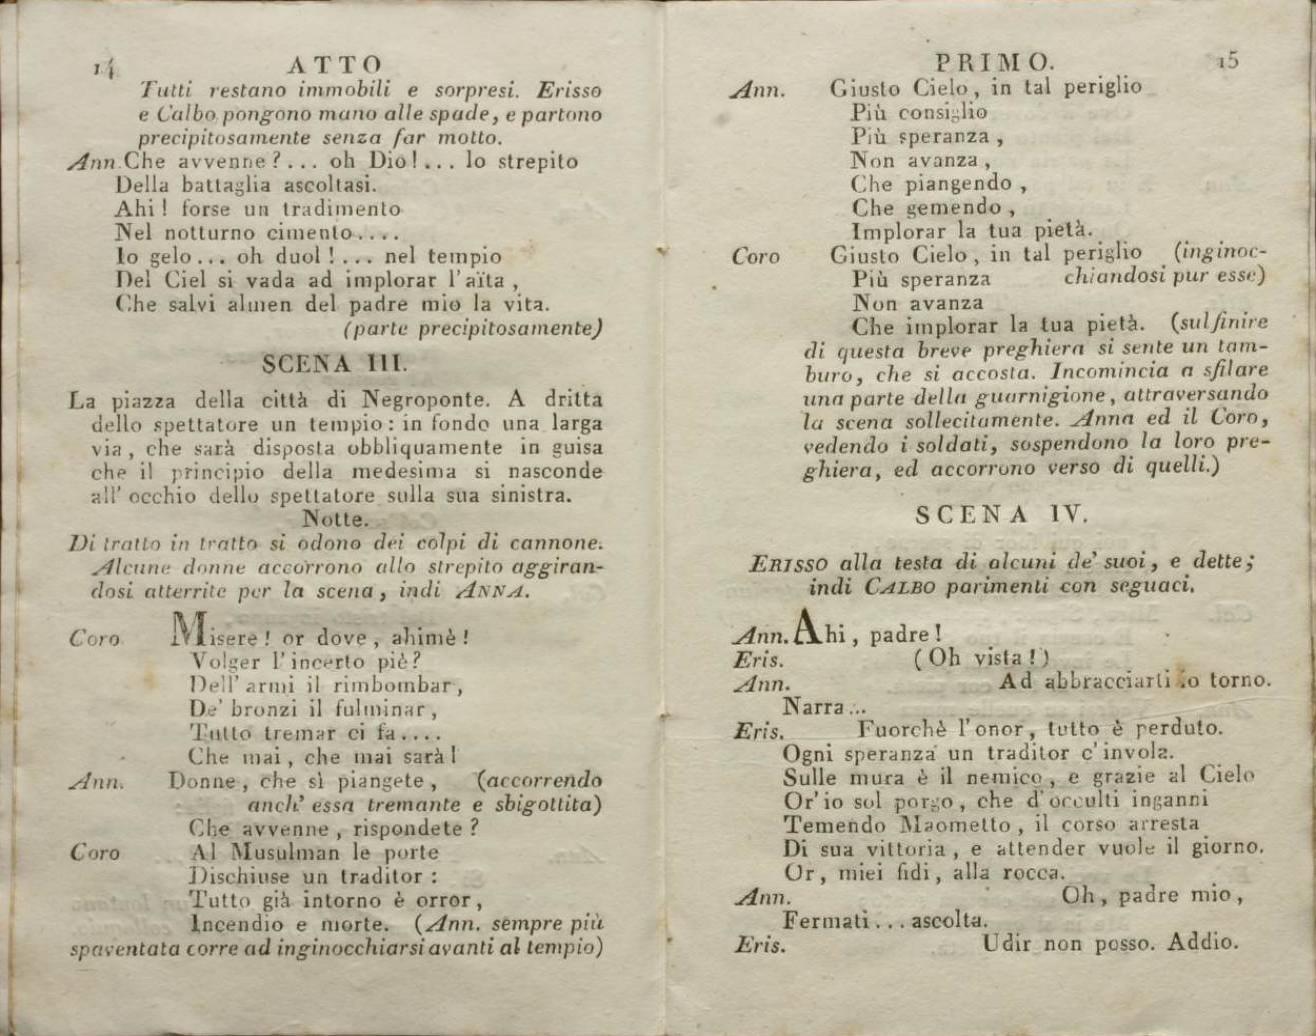 14 ATTO
Tutti restano immobili e sorpresi. Erisso
e Calbo pongono mano alle spade, e partono
precipitosamente senza far motto.
Ann. Che avvenne?... oh Dio!... lo strepito
Della battaglia ascoltasi.
Ahi! forse un tradimento
Nel notturno cimento....
Io gelo... oh duol!... nel tempio
Del Ciel si vada ad implorar l'aïta,
Che salvi almen del padre mio la vita.
(parte precipitosamente)
SCENA III.
La piazza della città di Negroponte. A dritta
dello spettatore un tempio: in fondo una larga
via, che sarà disposta obbliquamente in guisa
che il principio della medesima si nasconde
all' occhio dello spettatore sulla sua sinistra.
Notte.
Di tratto in tratto si odono dei colpi di cannone.
Alcune donne accorrono allo strepito aggiran-
dosi atterrite per la scena, indi ANNA.
Coro Misere! or dove, ahimè!
Volger l'incerto piè?
Dell' armi il rimbombar,
De' bronzi il fulminar,
Tutto tremar ci fa....
Che mai, che mai sarà!
Ann. Donne, che sì piangete, (accorrendo
anch' essa tremante e sbigottita)
Che avvenne, rispondete?
Coro Al Musulman le porte
Dischiuse un traditor:
Tutto già intorno è orror,
Incendio e morte. (Ann. sempre più
spaventata corre ad inginocchiarsi avanti al tempio)
PRIMO. 15
Ann. Giusto Cielo, in tal periglio
Più consiglio
Più speranza,
Non avanza,
Che piangendo,
Che gemendo,
Implorar la tua pietà.
Coro Giusto Cielo, in tal periglio (inginoc-
Più speranza chiandosi pur esse)
Non avanza
Che implorar la tua pietà. (sul finire
di questa breve preghiera si sente un tam-
buro, che si accosta. Incomincia a sfilare
una parte della guarnigione, attraversando
la scena sollecitamente. Anna ed il Coro,
vedendo i soldati, sospendono la loro pre-
ghiera, ed accorrono verso di quelli.)
SCENA IV.
ERISSO alla testa di alcuni de' suoi, e dette;
indi CALBO parimenti con seguaci.
Ann. Ahi, padre!
Eris. (Oh vista!)
Ann. Ad abbracciarti io torno.
Narra...
Eris. Fuorchè l'onor, tutto è perduto.
Ogni speranza un traditor c'invola.
Sulle mura è il nemico, e grazie al Cielo
Or' io sol porgo, che d'occulti inganni
Temendo Maometto, il corso arresta
Di sua vittoria, e attender vuole il giorno.
Or, miei fidi, alla rocca.
Ann. Oh, padre mio,
Fermati... ascolta.
Eris. Udir non posso. Addio.